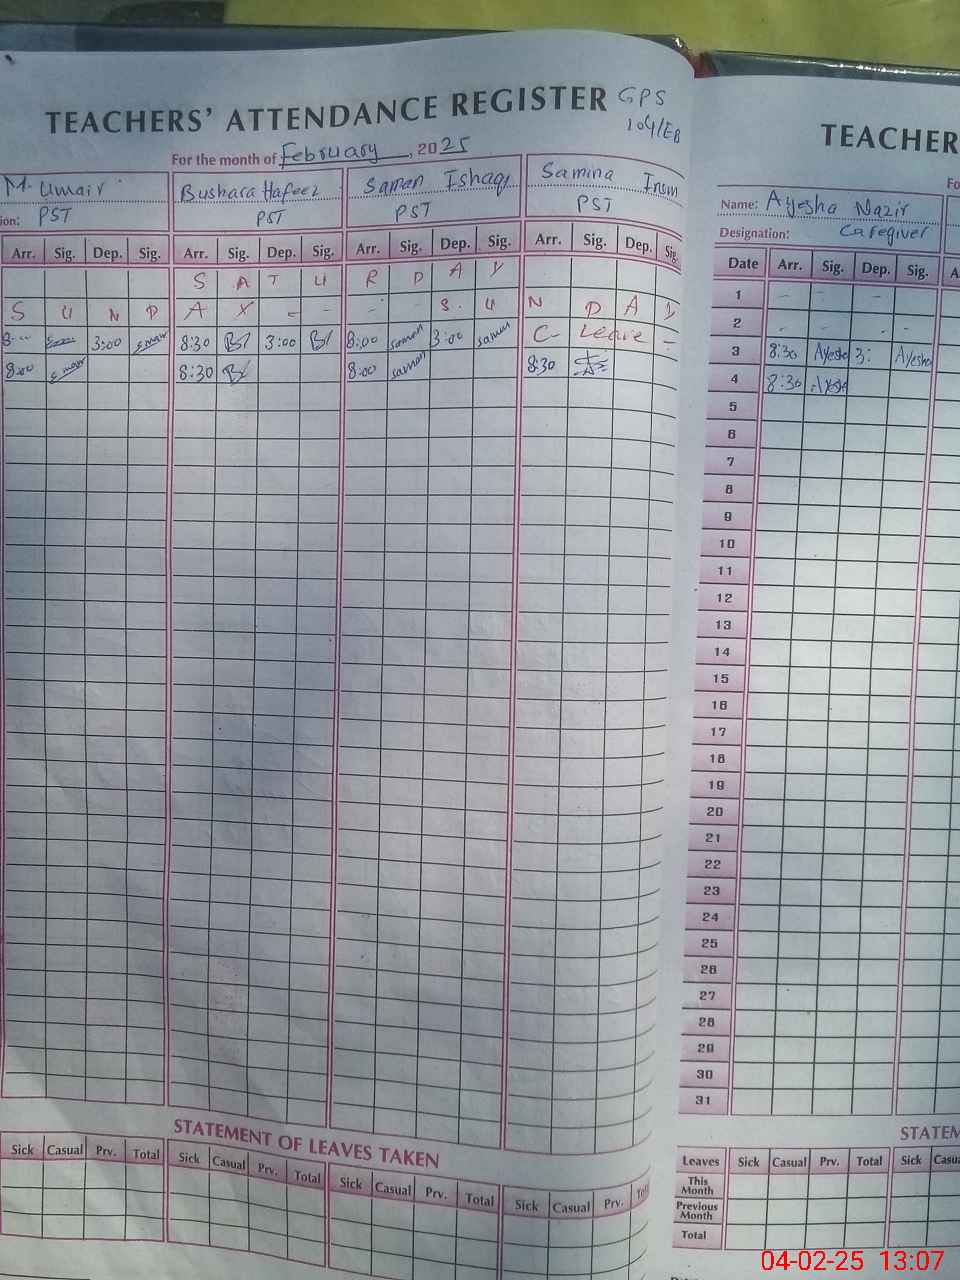 TEACHERS' ATTENDANCE REGISTER GPS
104/EB
For the month of February, 2025
M. Umair Bushara Hafeez Saman Ishaq Samina
ion: PST PST PST PST
Arr. Sig. Dep. Sig. Arr. Sig. Dep. Sig. Arr. Sig. Dep. Sig. Arr. Sig. Dep. Sig.
S A T U R D A Y
S U N D A Y - - - - S. U N D A Y
8:00 3:00 Umair 8:30 3:00 8:00 saman 3:00 saman C- Leave -
8:00 Umair 8:30 8:00 saman 8:30
STATEMENT OF LEAVES TAKEN
Sick Casual Prv. Total Sick Casual Prv. Total Sick Casual Prv. Total Sick Casual Prv. Tot
TEACHER
Fo
Name: Ayesha Nazir
Designation: Caregiver
Date Arr. Sig. Dep. Sig. A
1 - - -
2 - - - -
3 8:30 Ayesha 3: Ayesha
4 8:30 Ayesha
5
6
7
8
9
10
11
12
13
14
15
16
17
18
19
20
21
22
23
24
25
26
27
28
29
30
31
STATEM
Leaves Sick Casual Prv. Total Sick Casua
This
Month
Previous
Month
Total
04-02-25 13:07